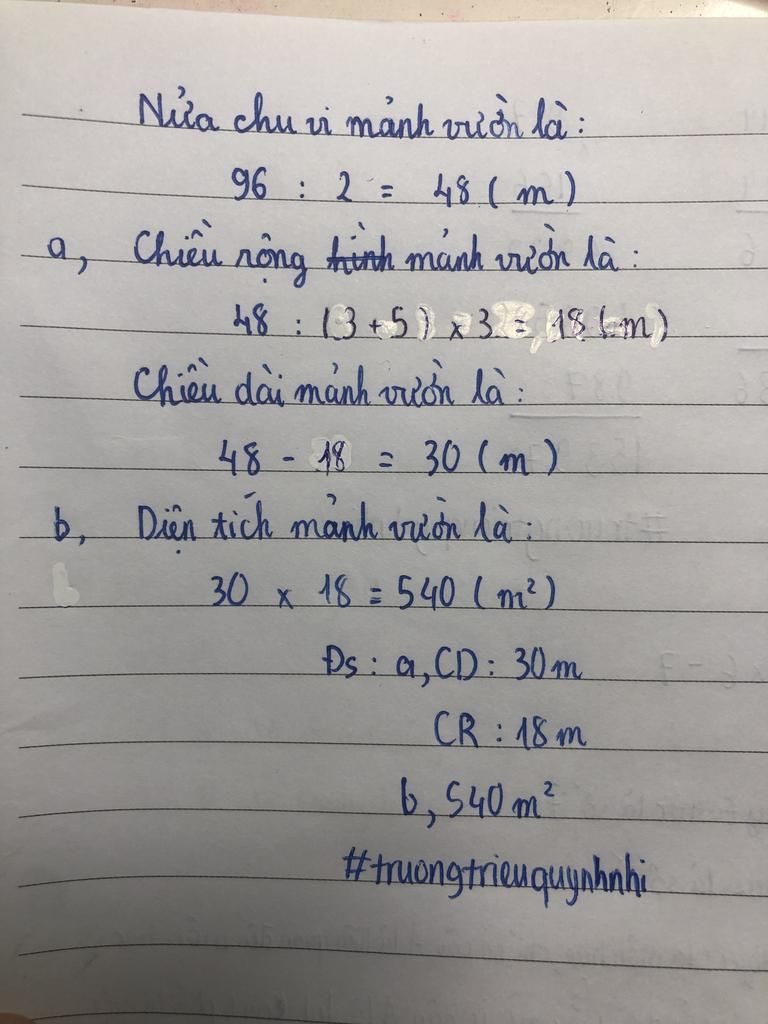 Nửa chu vi mảnh vườn là:
96 : 2 = 48 ( m )
a, Chiều rộng hình mảnh vườn là :
48 : (3 + 5) x 3 = 18 ( m )
Chiều dài mảnh vườn là :
48 - 18 = 30 ( m )
b, Diện tích mảnh vườn là :
30 x 18 = 540 ( m² )
Đs : a, CD : 30m
CR : 18m
b, 540m²
#truongtrieuquynhnhi